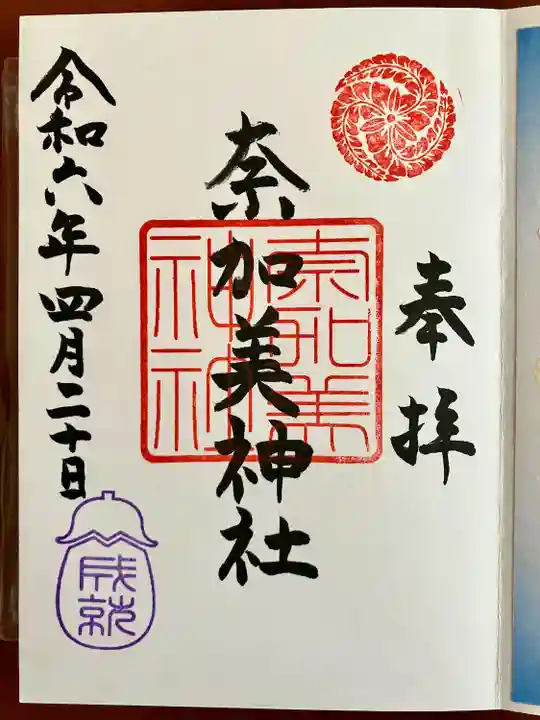 奉拝
奈加美神社
奈加美
神社
令和六年四月二十日
成就